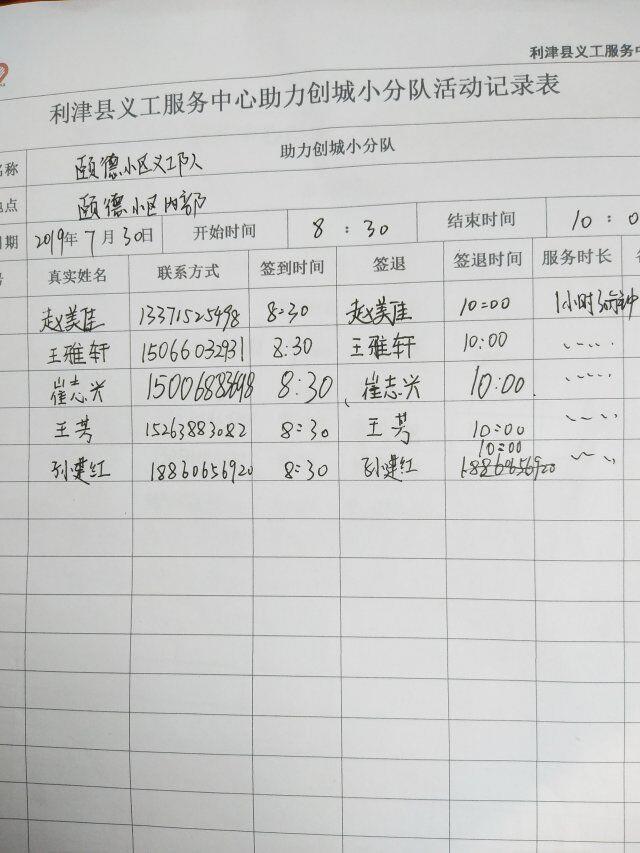 利津县义工服务中
利津县义工服务中心助力创城小分队活动记录表
名称 颐德小区义工队 助力创城小分队
地点 颐德小区内部
日期 2019年7月30日 开始时间 8:30 结束时间 10:0
号 真实姓名 联系方式 签到时间 签退 签退时间 服务时长
赵美佳 13371525498 8:30 赵美佳 10:00 1小时30分钟
王雅轩 15066032931 8:30 王雅轩 10:00
崔志兴 8:30 崔志兴 10:00
王芳 15263883082 8:30 王芳 10:00
10:00
孙建红 18860656920 8:30 孙建红 18860656920